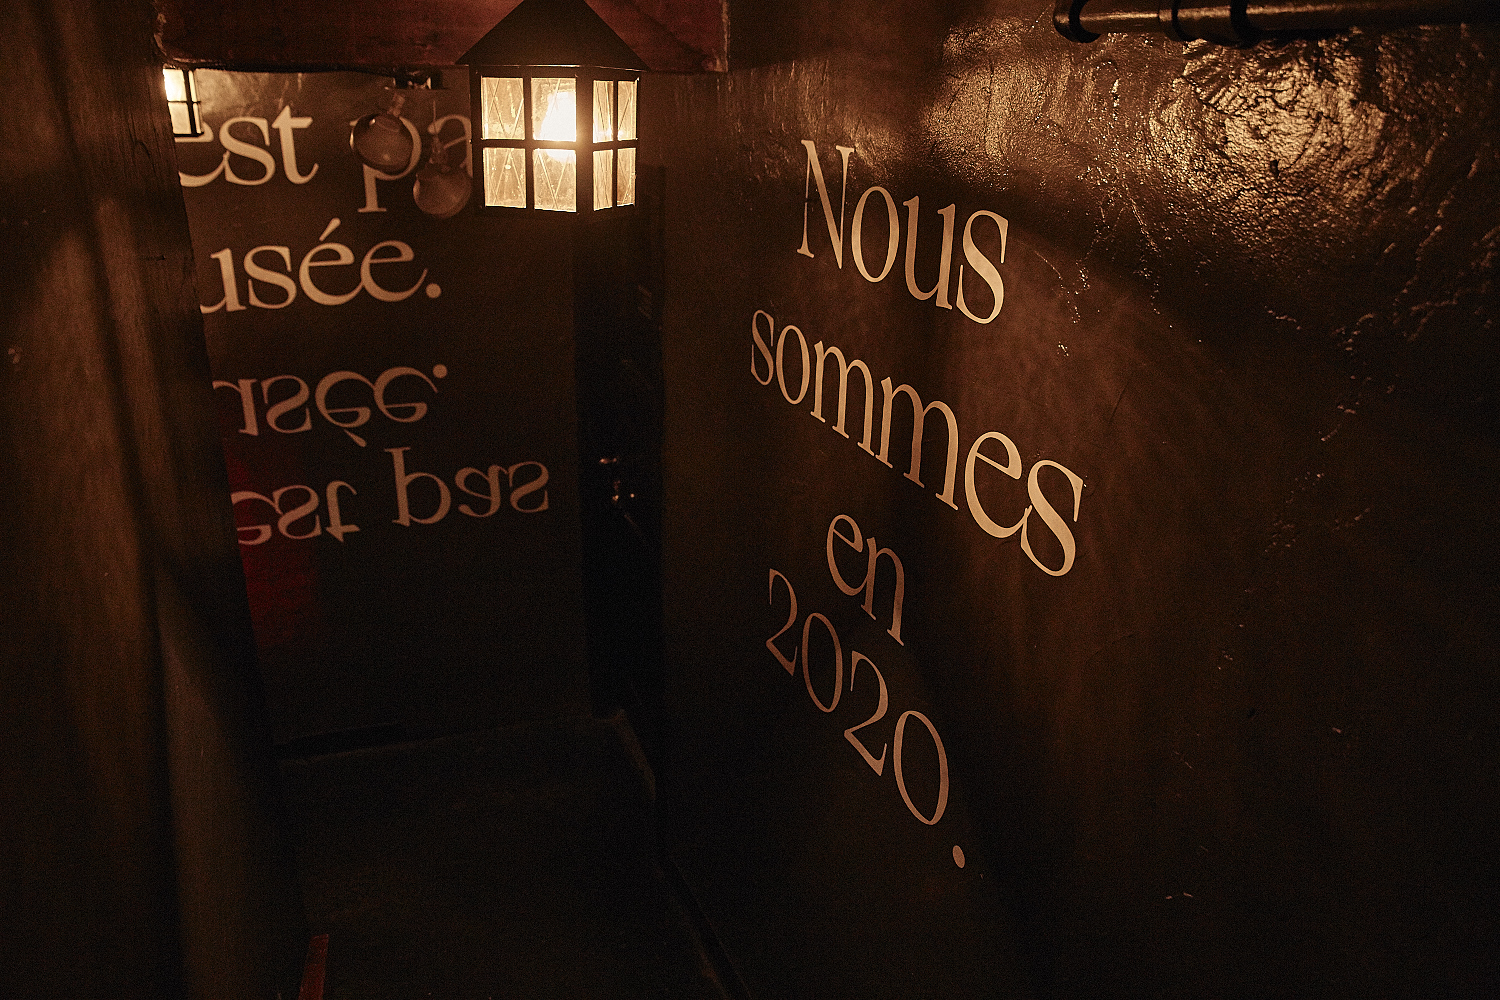 est pa
usée.
usée.
est pas
Nous
sommes
en
2020.